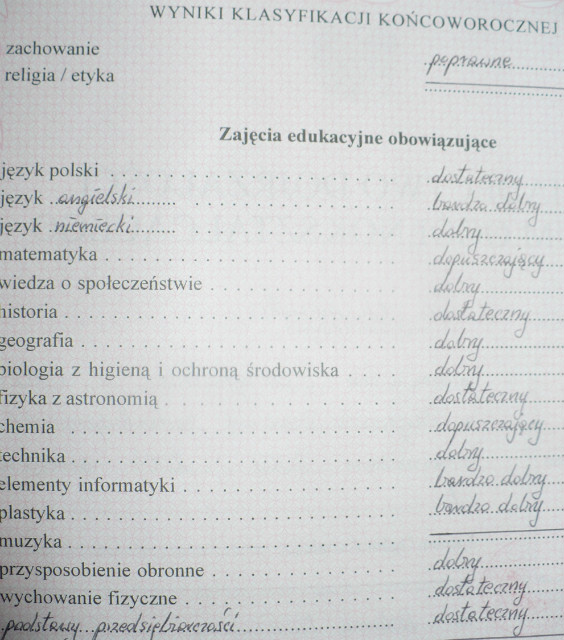 WYNIKI KLASYFIKACJI KOŃCOWOROCZNEJ
zachowanie poprawne
religia / etyka
Zajęcia edukacyjne obowiązujące
język polski dostateczny
język angielski bardzo dobry
język niemiecki dobry
matematyka dopuszczający
wiedza o społeczeństwie dobry
historia dostateczny
geografia dobry
biologia z higieną i ochroną środowiska dobry
fizyka z astronomią dostateczny
chemia dopuszczający
technika dobry
elementy informatyki bardzo dobry
plastyka bardzo dobry
muzyka
przysposobienie obronne dobry
wychowanie fizyczne dostateczny
podstawy przedsiębiorczości dostateczny